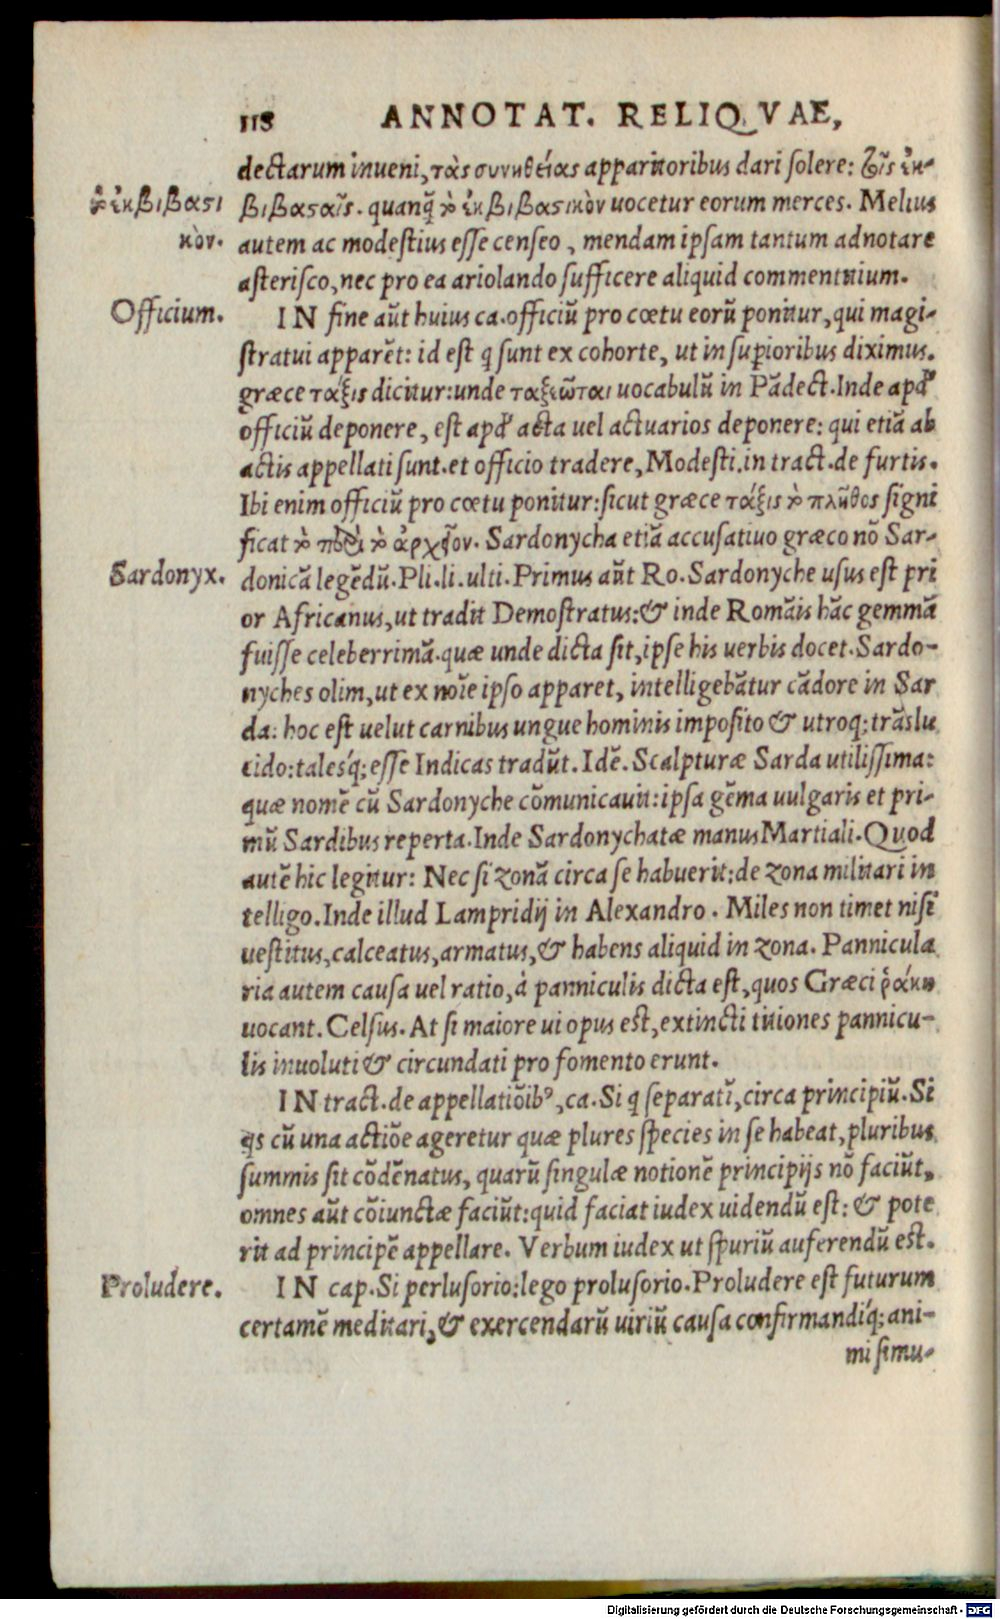 118 ANNOTAT. RELIQVAE,
dectarum inueni, τὰς συνηθείας apparitoribus dari solere: τοῖς ἐκ-
τὸ ἐκβιβασι βιβασαῖς. quanq̃ τὸ ἐκβιβασικὸν uocetur eorum merces. Melius
κὸν. autem ac modestius esse censeo, mendam ipsam tantum adnotare
asterisco, nec pro ea ariolando sufficere aliquid commentitium.
Officium. IN fine aũt huius ca. officiũ pro cœtu eorũ ponitur, qui magi-
stratui apparẽt: id est q̃ sunt ex cohorte, ut in supioribus diximus.
græce τάξις dicitur: unde ταξεῶται uocabulũ in Pãdect. Inde apd'
officiũ deponere, est apd' acta uel actuarios deponere: qui etiã ab
actis appellati sunt. et officio tradere, Modesti. in tract. de furtis.
Ibi enim officiũ pro cœtu ponitur: sicut græce τάξις τὸ πλῆθος signi
ficat τὸ τὸ ἀρχεῖον. Sardonycha etiã accusatiuo græco nõ Sar-
Sardonyx. donicã legẽdũ. Pli. li. ulti. Primus aũt Ro. Sardonyche usus est pri
or Africanus, ut tradit Demostratus: & inde Romãis hãc gemmã
fuisse celeberrimã. quæ unde dicta sit, ipse his uerbis docet. Sardo-
nyches olim, ut ex noĩe ipso apparet, intelligebãtur cãdore in Sar
da: hoc est uelut carnibus ungue hominis imposito & utroq; trãslu
cido: talesq́; esse Indicas tradũt. Idẽ. Scalpturæ Sarda utilissima:
quæ nomẽ cũ Sardonyche cõmunicauit: ipsa gẽma uulgaris et pri-
mũ Sardibus reperta. Inde Sardonychatæ manus Martiali. Quod
autẽ hic legitur: Nec si zonã circa se habuerit: de zona militari in
telligo. Inde illud Lampridij in Alexandro. Miles non timet nisi
uestitus, calceatus, armatus, & habens aliquid in zona. Pannicula
ria autem causa uel ratio, à panniculis dicta est, quos Græci ῥάκη
uocant. Celsus. At si maiore ui opus est, extincti titiones pannicu-
lis inuoluti & circundati pro fomento erunt.
IN tract. de appellatiõib⁹, ca. Si q̃ separatĩ, circa principiũ. Si
q̃s cũ una actiõe ageretur quæ plures species in se habeat, pluribus
summis sit cõdẽnatus, quarũ singulæ notionẽ principijs nõ faciũt,
omnes aũt cõiunctæ faciũt: quid faciat iudex uidendũ est: & pote
rit ad principẽ appellare. Verbum iudex ut spuriũ auferendũ est.
Proludere. IN cap. Si perlusorio: lego prolusorio. Proludere est futurum
certamẽ meditari, & exercendarũ uiriũ causa confirmandiq́; ani-
mi simu-
Digitalisierung gefördert durch die Deutsche Forschungsgemeinschaft - DFG